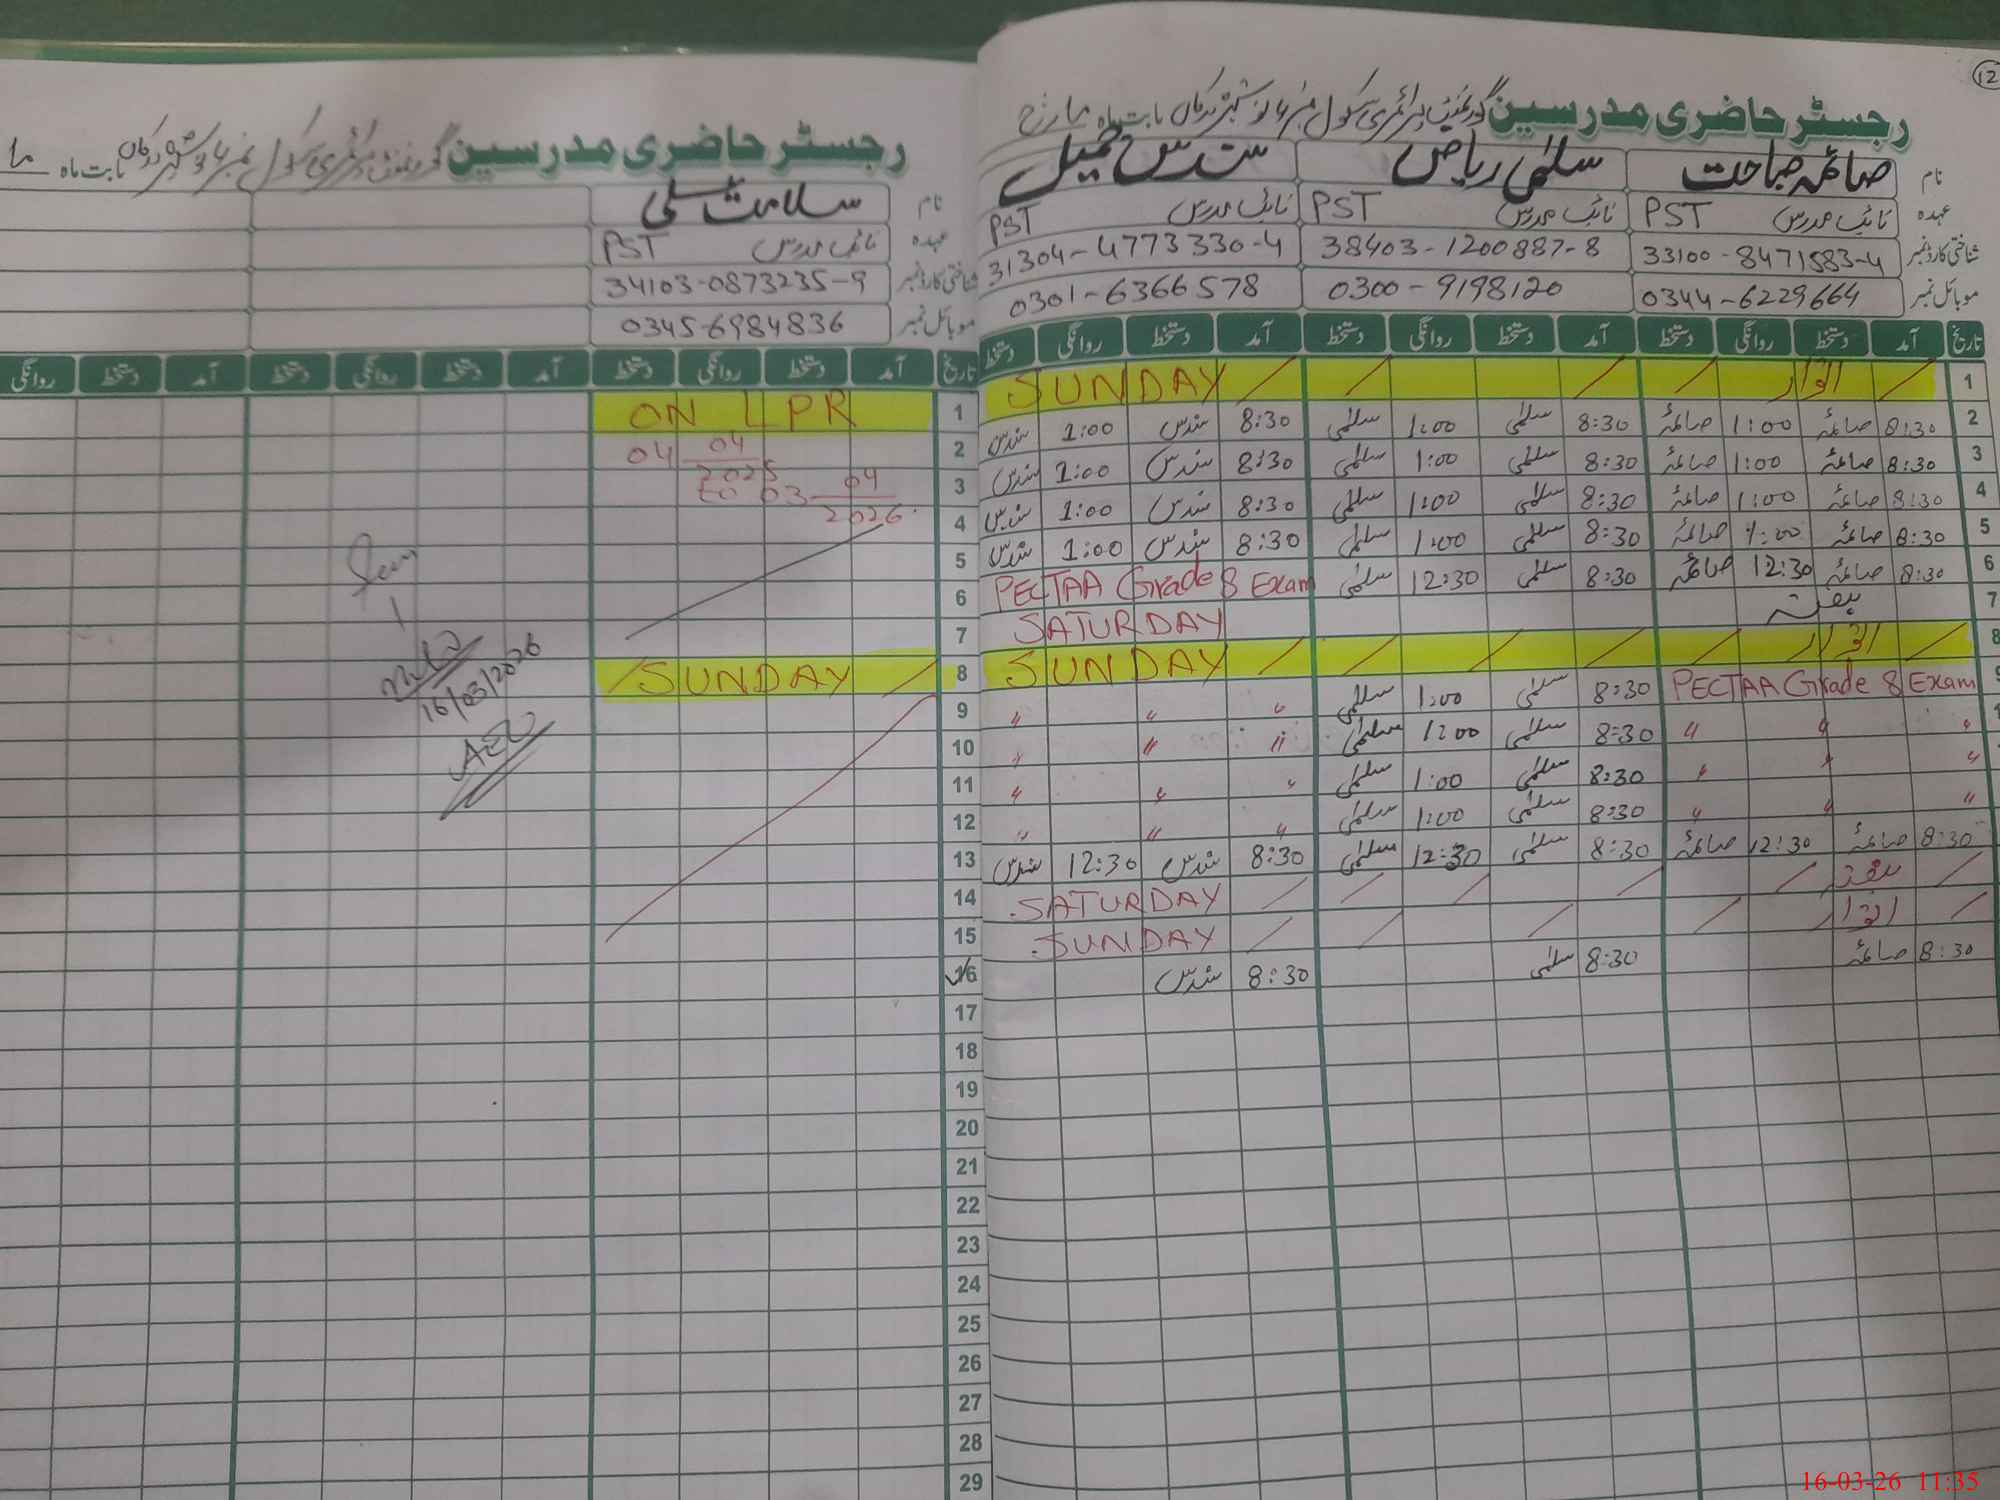 12
رجسٹر حاضری مدرسین گورنمنٹ پرائمری سکول نمبر بابت ماہ مارچ
نام صائمہ صباحت سلمٰی ریاض سندس جمیل
عہدہ نائب مدرس PST نائب مدرس PST نائب مدرس PST
شناختی کارڈ نمبر 33100-8471583-4 38403-1200887-8 31304-4773330-4
موبائل نمبر 0344-6229664 0300-9198120 0301-6366578
تاریخ آمد دستخط روانگی دستخط آمد دستخط روانگی دستخط آمد دستخط روانگی دستخط
1 / اتوار / / / / SUNDAY
2 8:30 صائمہ 1:00 صائمہ 8:30 سلمٰی 1:00 سلمٰی 8:30 سندس 1:00 سندس
3 8:30 صائمہ 1:00 صائمہ 8:30 سلمٰی 1:00 سلمٰی 8:30 سندس 1:00 سندس
4 8:30 صائمہ 1:00 صائمہ 8:30 سلمٰی 1:00 سلمٰی 8:30 سندس 1:00 سندس
5 8:30 صائمہ 1:00 صائمہ 8:30 سلمٰی 1:00 سلمٰی 8:30 سندس 1:00 سندس
6 8:30 صائمہ 12:30 صائمہ 8:30 سلمٰی 12:30 سلمٰی PECTAA Grade 8 Exam
7 ہفتہ SATURDAY
8 / اتوار / / / / / SUNDAY
9 PECTAA Grade 8 Exam 8:30 سلمٰی 1:00 سلمٰی " " "
10 " " " 8:30 سلمٰی 1:00 سلمٰی " " "
11 " " " 8:30 سلمٰی 1:00 سلمٰی " " "
12 " " " 8:30 سلمٰی 1:00 سلمٰی " " "
13 8:30 صائمہ 12:30 صائمہ 8:30 سلمٰی 12:30 سلمٰی 8:30 سندس 12:30 سندس
14 / ہفتہ / / / / / SATURDAY
15 / اتوار / / / / SUNDAY
16 8:30 صائمہ 8:30 سلمٰی 8:30 سندس
17
18
19
20
21
22
23
24
25
26
27
28
29
رجسٹر حاضری مدرسین گورنمنٹ پرائمری سکول نمبر بابت ماہ ما
نام سلامت
عہدہ نائب مدرس PST
شناختی کارڈ نمبر 34103-0873235-9
موبائل نمبر 0345-6984836
تاریخ آمد دستخط روانگی دستخط آمد دستخط روانگی دستخط آمد دستخط روانگی
1 ON LPR
2 04 04
3 2025 to 03 04
4 2026
5
6
7
8 / SUNDAY /
16/03/2026
AEO
16-03-26 11:35